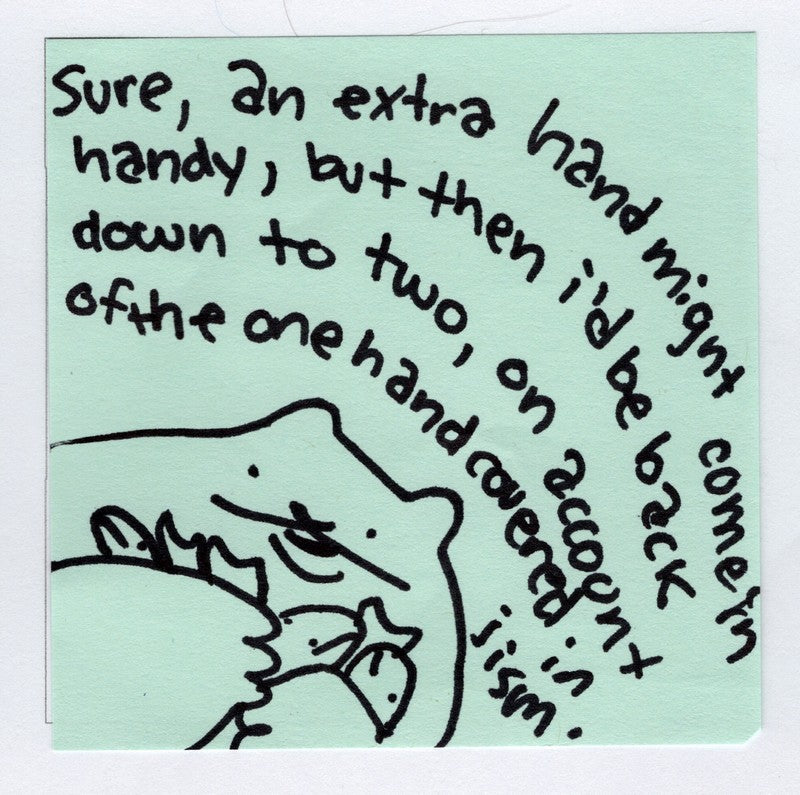 Sure, an extra hand might come in
handy, but then i'd be back
down to two, on account
of the one hand covered in
jism.